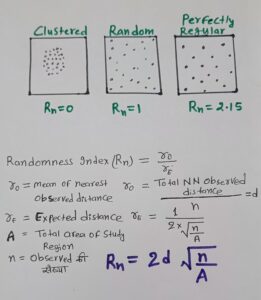 Clustered
Random
Perfectly
Regular
Rn=0
Rn=1
Rn = 2.15
Randomness Index (Rn) = r̄o / r̄E
r̄o = mean of nearest observed distance
r̄o = Total NN observed distance / n = d
r̄E = Expected distance
r̄E = 1 / 2×√n/A
A = Total area of Study Region
n = Observed की संख्या
Rn = 2d √n/A